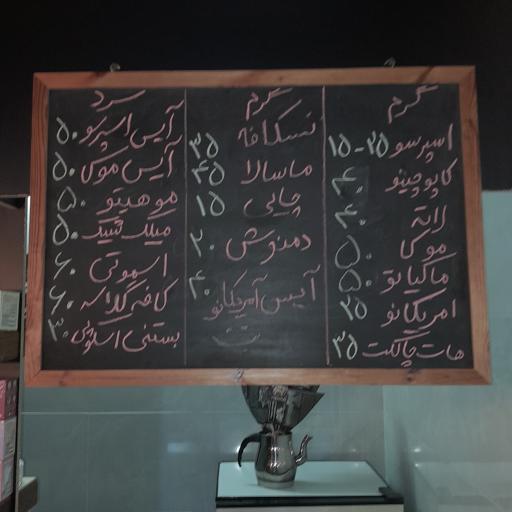 گرم
اسپرسو ۲۵-۱۵
کاپوچینو ۴۰
لاته ۴۰
موکا ۵۰
ماکیاتو ۵۰
امریکانو ۲۵
هات چاکلت ۳۵
گرم
نسکافه ۳۵
ماسالا ۴۵
چایی ۱۵
دمنوش ۲۰
آیس آمریکانو ۴۰
سرد
آیس اسپرسو ۵۰
آیس موکا ۵۰
موهیتو ۵۰
میلک شیک ۵۰
اسموتی ۶۰
کافه گلاسه ۶۰
بستنی اسکوپی ۳۰